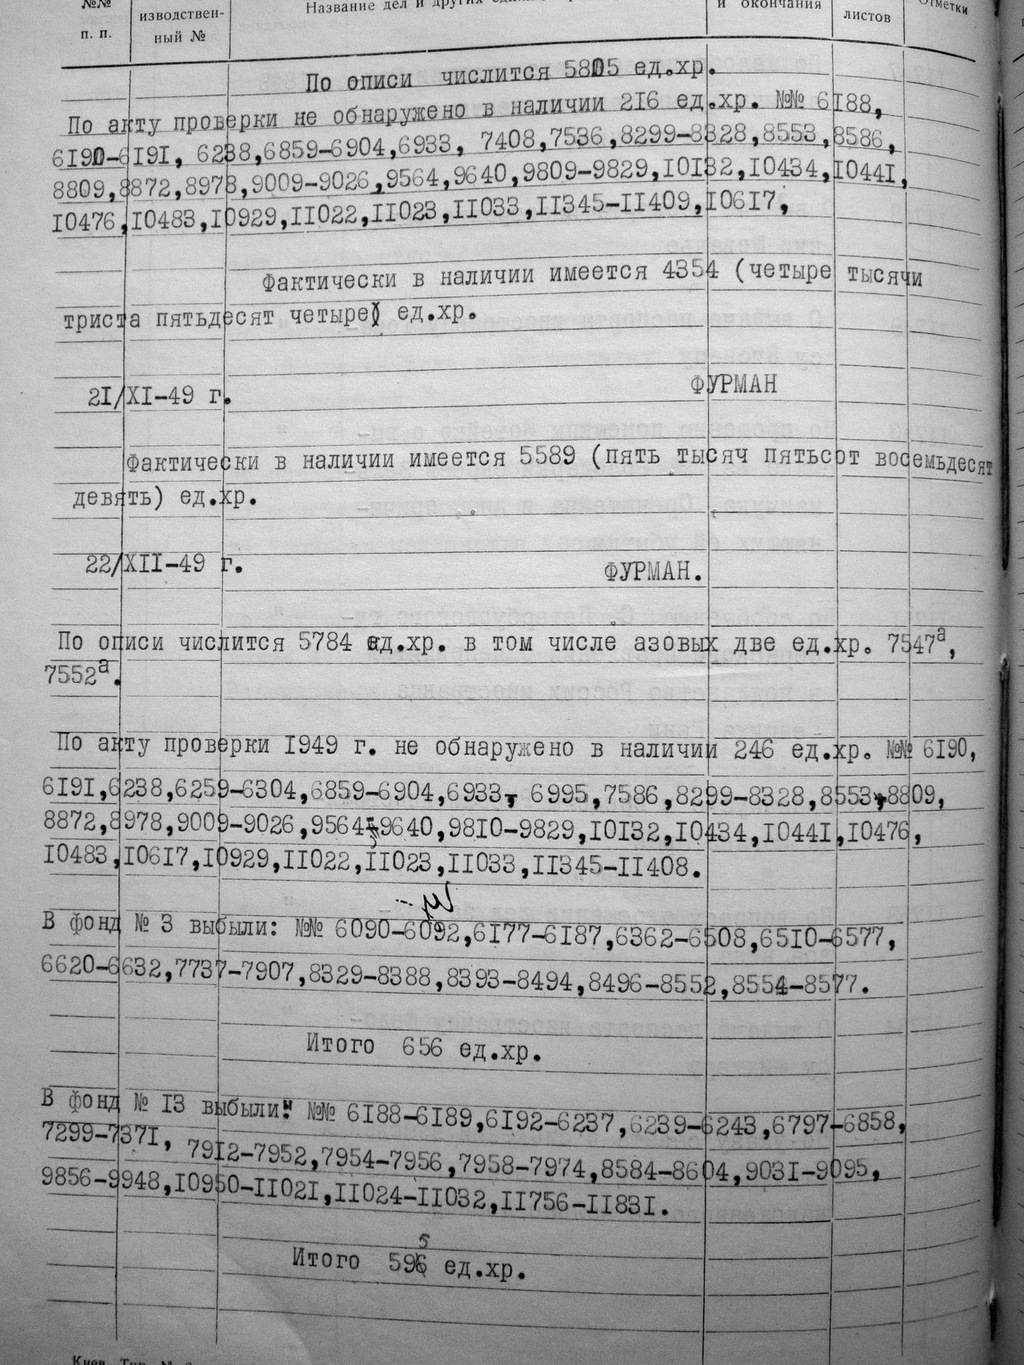 №№
п. п.
изводствен-
ный №
Название дел и других
и окончания
листов
Отметки
По описи числится 5805 ед.хр.
По акту проверки не обнаружено в наличии 216 ед.хр. №№ 6188,
6190-6191, 6238,6859-6904,6933, 7408,7536,8299-8328,8553,8586,
8809,8872,8978,9009-9026,9564,9640,9809-9829,10132,10434,10441,
10476,10483,10929,11022,11023,11033,11345-11409,10617,
Фактически в наличии имеется 4354 (четыре тысячи
триста пятьдесят четыре) ед.хр.
21/XI-49 г.
ФУРМАН
Фактически в наличии имеется 5589 (пять тысяч пятьсот восемьдесят
девять) ед.хр.
22/XII-49 г.
ФУРМАН.
По описи числится 5784 ед.хр. в том числе азовых две ед.хр. 7547а,
7552а.
По акту проверки 1949 г. не обнаружено в наличии 246 ед.хр. №№ 6190,
6191,6238,6259-6304,6859-6904,6933, 6995,7586,8299-8328,8553,8809,
8872,8978,9009-9026,9564,9640,9810-9829,10132,10434,10441,10476,
10483,10617,10929,11022,11023,11033,11345-11408.
В фонд № 3 выбыли: №№ 6090-6092,6177-6187,6362-6508,6510-6577,
6620-6632,7737-7907,8329-8388,8393-8494,8496-8552,8554-8577.
Итого 656 ед.хр.
В фонд № 13 выбыли: №№ 6188-6189,6192-6237,6239-6243,6797-6858,
7299-7371, 7912-7952,7954-7956,7958-7974,8584-8604,9031-9095,
9856-9948,10950-11021,11024-11032,11756-11831.
5
Итого 596 ед.хр.